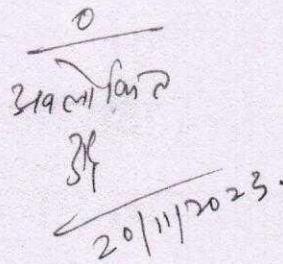 0
अवलोकित
20/11/2023.